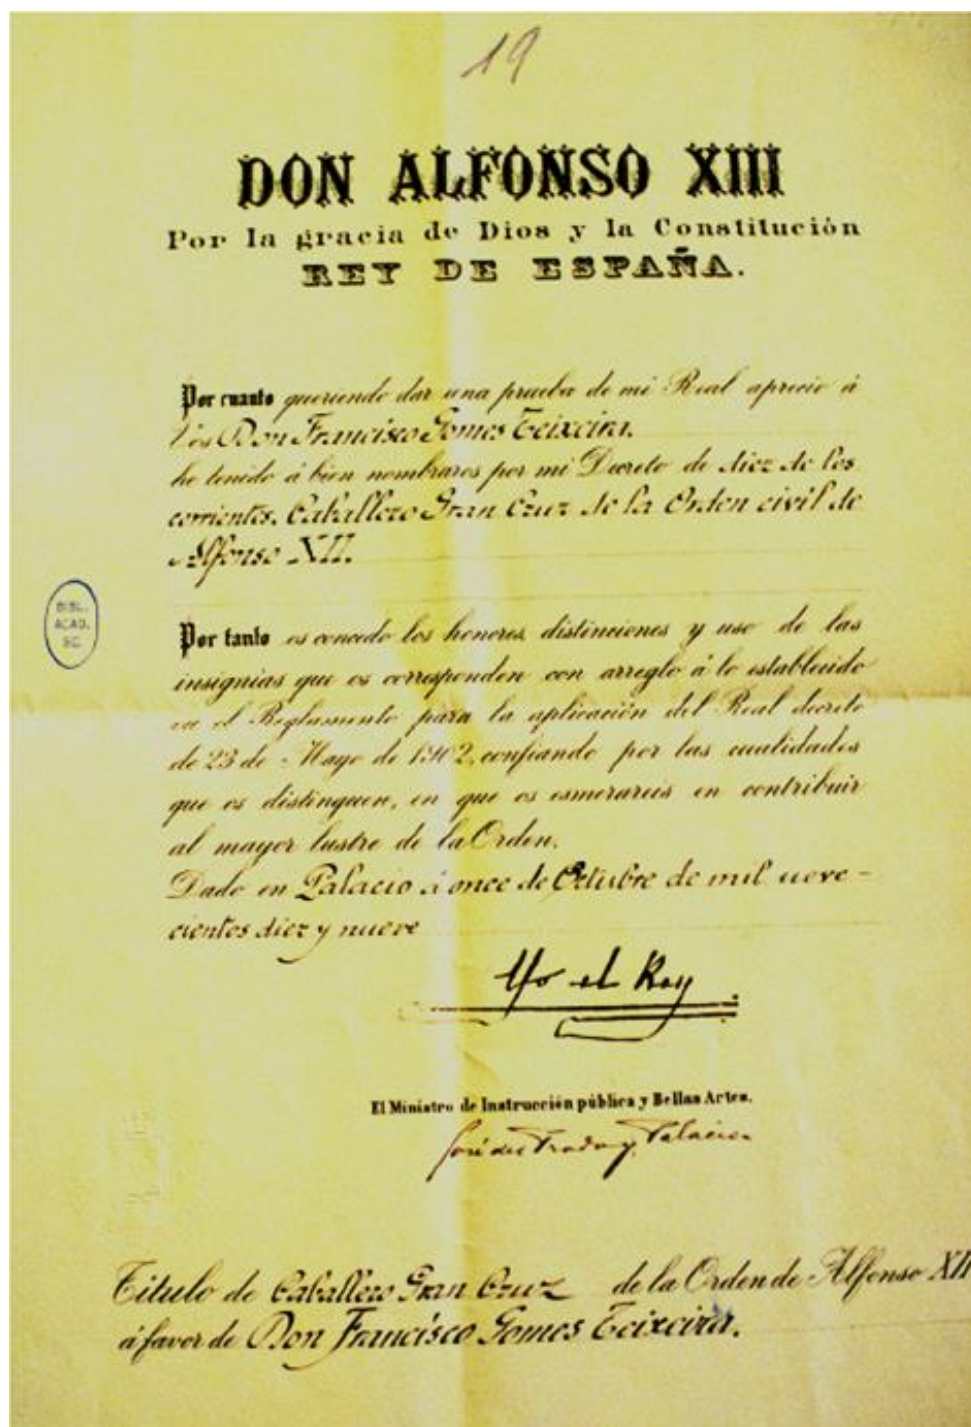 19
DON ALFONSO XIII
Por la gracia de Dios y la Constitución
REY DE ESPAÑA.
Por cuanto queriendo dar una prueba de mi Real aprecio á
Vos Don Francisco Gomes Teixeira.
he tenido á bien nombraros por mi Decreto de diez de los
corrientes, Caballero Gran Cruz de la Orden civil de
Alfonso XII.
BIBL.
ACAD.
SC.
Por tanto os concedo los honores, distinciones y uso de las
insignias que os corresponden con arreglo á lo establecido
en el Reglamento para la aplicación del Real decreto
de 23 de Mayo de 1902, confiando por las cualidades
que os distinguen, en que os esmerareis en contribuir
al mayor lustre de la Orden.
Dado en Palacio á once de Octubre de mil nove-
cientos diez y nueve
Yo el Rey
El Ministro de Instrucción pública y Bellas Artes.
José del Prado y Palacio
Titulo de Caballero Gran Cruz de la Orden de Alfonso XII
á favor de Don Francisco Gomes Teixeira.